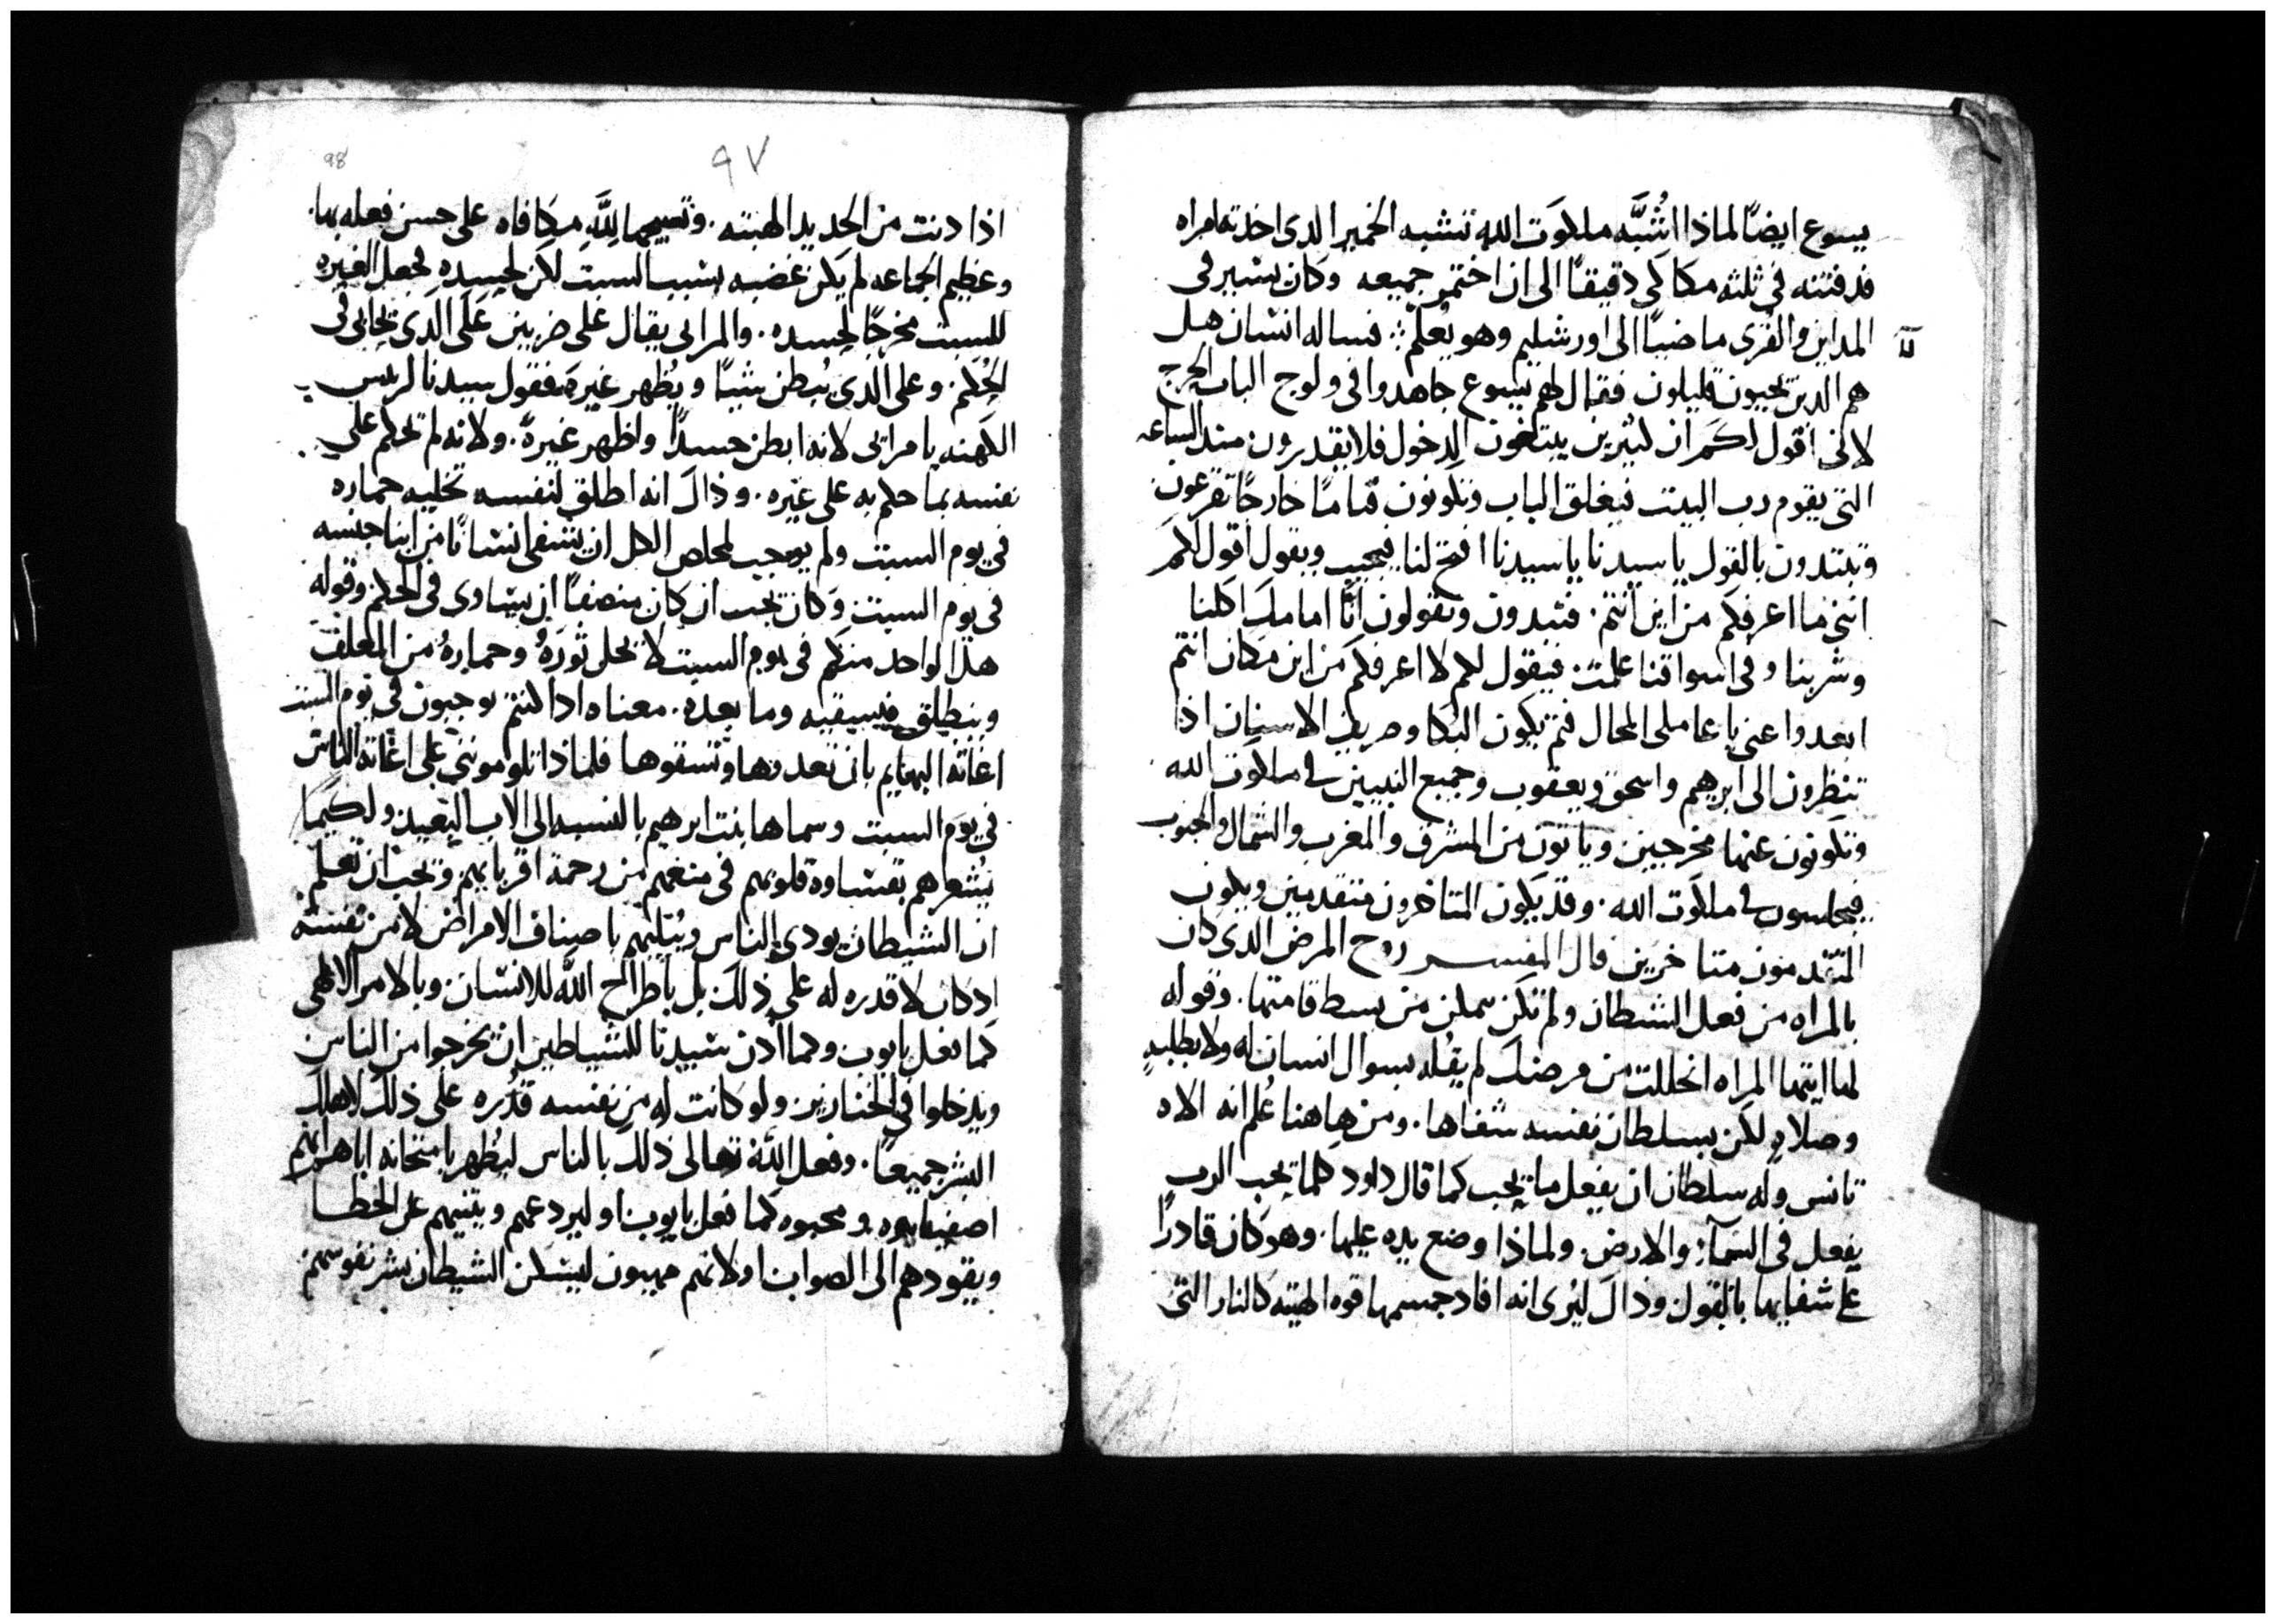 يسوع ايضًا لماذا اُشَبَّه ملكوَت الله تشبه الخمير الذى اخذته امراه
فدفنته في ثلثه مكاكي دقيقًا الى ان اختمر جميعه وكان يسير فى
المداين والقُرى ماضيًا الى اورشليم وهو يُعلّم فساله انسان هل
هم الذين يحيون قليلون فقال لهم يسوع جاهدوا فى ولوج الباب الحرج
لانى اقول لكم ان كثيرين يبتغون الدخول فلا يقدرون منذ الساعه
التى يقوم رب البيت فيغلق الباب وتكونون قيامًا خارجًا تقرعون
وتبتدون بالقول يا سيدنا يا سيدنا افتح لنا فيجيب ويقول اقول لكم
اننى ما اعرفكم من اين انتم. فتبدون وتقولون انَّا امامك اكلنا
وشربنا وفى اسواقنا علمت. فيقول لكم لا اعرفكم من اين مكان انتم
ابعدوا عنى يا عاملى المحال فثم يكون البكا وصريف الاسنان اذا
تنظرون الى ابرهيم واسحق ويعقوب وجميع النبيين فى ملكوت الله
وتكونون عنها مخرجين وياتون من المشرق والمغرب والشمال والجنوب
فيجلسون فى ملكوت الله. وقد يكون المتاخرون متقدمين ويكون
المتقدمون متاخرين قال المفسر روح المرض الذى كان
بالمراه من فعل الشيطان ولم تكن تمكن من بسط قامتها. وقوله
لها ايتها المراه انحللت من مرضك لم يقُله بسوال انسان له ولا بطلبهٍ
وصلاهٍ لكن بسلطان نفسه شفاها. ومن هاهنا عُلم انه الاه
تانس وله سلطان ان يفعل ما يحب كما قال داود كلما يحب الرب
يفعل فى السمآ والارض. ولماذا وضع يده عليها. وهو كان قادرًا
على شفايها بالقول وذالك ليُرى انه افاد جسمها قوه الهيته كالنار التى
٩٧
98
اذا دنت من الحديد الهبته. وتسبيحها للّه مكافاه على حسن فعله بها.
وعظيم الجماعه لم يكن غضبه بسبب السبت لكن لحسده فجعل الغيره
للسبت مخرجًا لحسده. والمرايى يقال على ضربين على الذى يحابى فى
الحُكم. وعلى الذى يُبطن شيًا ويُظهر غيره فقول سيدنا لريس
الكهنه يا مرايى لانه ابطن حسدًا واظهر غيرةً. ولانه لم يحكم على
نفسه بما حكم به على غيره. وذالك انه اطلق لنفسه تخليه حماره
فى يوم السبت ولم يوجب لمخلص الكل ان يشفى انسانًا من ابنا جنسه
فى يوم السبت وكان يجب ان كان منصفًا ان يساوى فى الحكم وقوله
هذا الواحد منكم فى يوم السبت لا يحل ثورهُ وحمارهُ من المعلف
وينطلق فيسقيه وما بعده. معناه اذا كنتم توجبون فى يوم السبت
اغاثه البهايم بان تعدوها وتسقوها فلماذا تلومونني على اغاثه الناس
فى يوم السبت وسماها بنت ابرهيم بالنسبه الى الاب البعيد ولكيما
يُشعرهم بقساوه قلوبهم فى منعهم من رحمة اقربايهم ويجب ان تعلم
ان الشيطان يودى الناس ويُبليهم باصناف الامراض لا من نفسه
اذ كان لا قدره له على ذلك بل باطراح اللّه للانسان وبالامر الالهى
كما فعل بايوب وكما اذن سيدنا للشياطين ان يخرجوا من الناس
ويدخلوا في الخنازير. ولو كانت له من نفسه قدره على ذلك لاهلك
البشر جميعًا. وفعل اللّه تعالى ذلك بالناس ليُظهر بامتحانه اياهم انهم
اصفياوه ومحبوه كما فعل بايوب او ليردعهم ويثنيهم عن الخطا
ويقودهم الى الصواب او لانهم مهيبون ليسكن الشيطان بشر نفوسهم